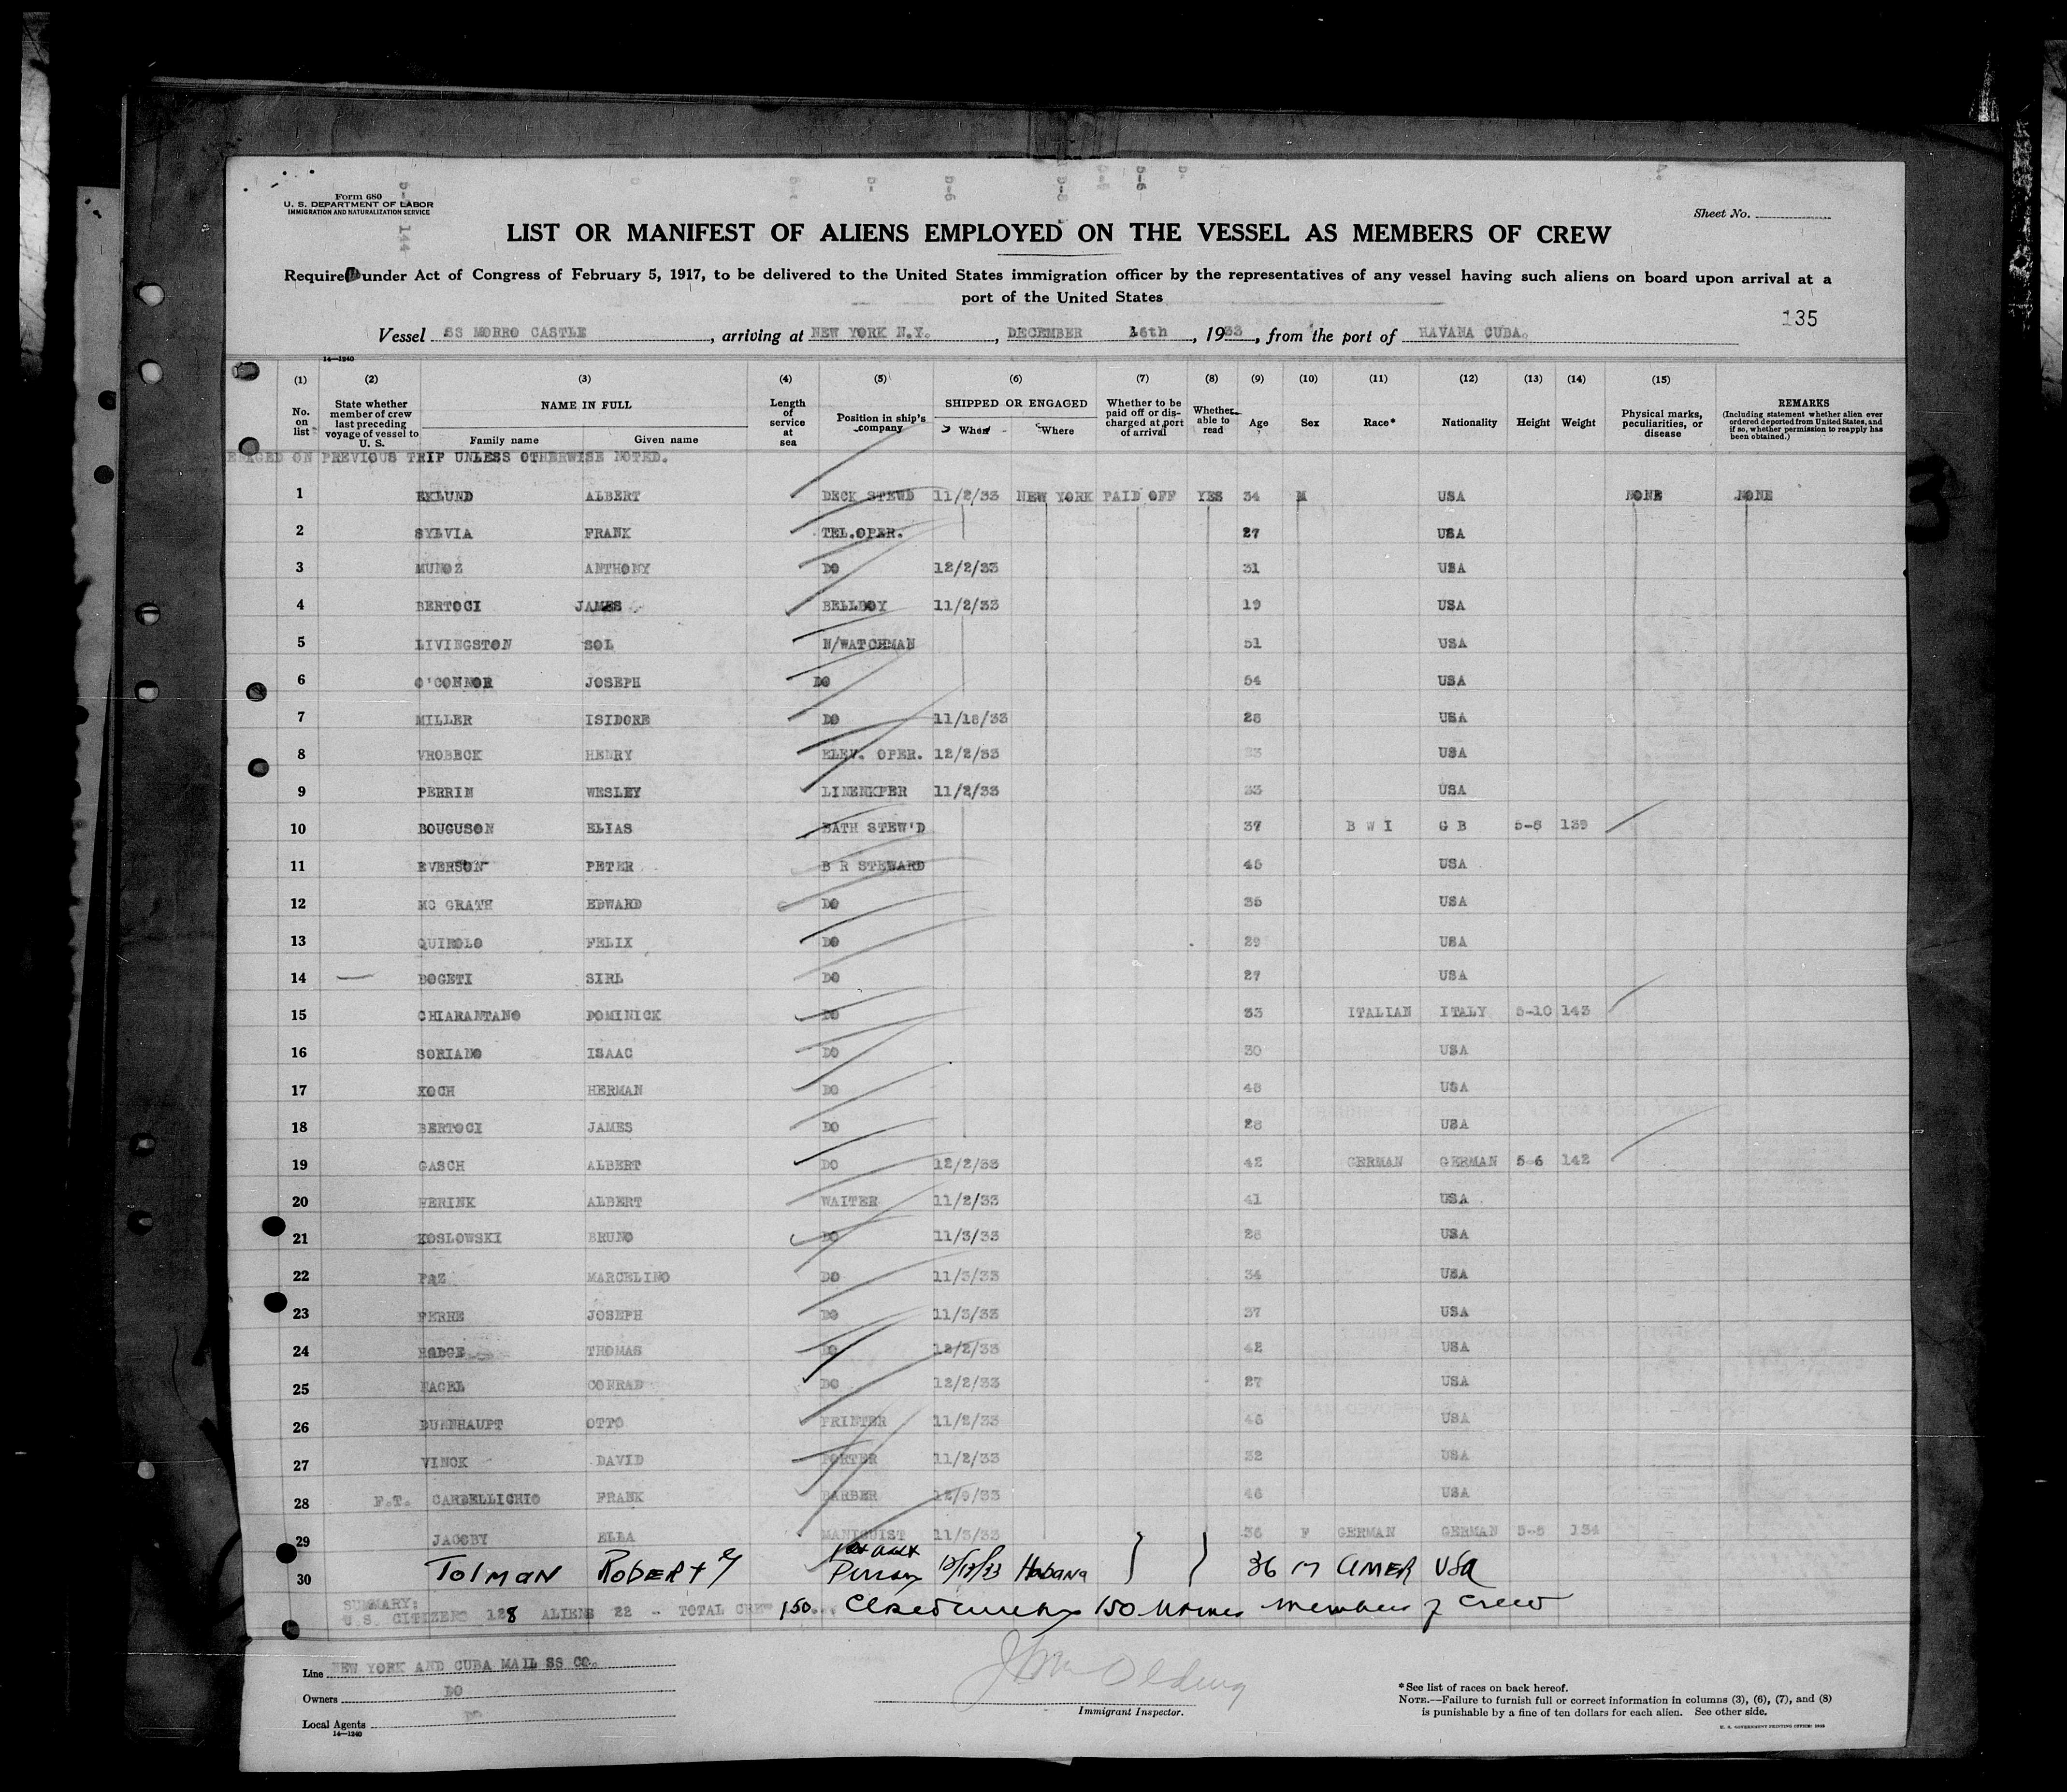 Form 680
U. S. DEPARTMENT OF LABOR
IMMIGRATION AND NATURALIZATION SERVICE
Sheet No.
LIST OR MANIFEST OF ALIENS EMPLOYED ON THE VESSEL AS MEMBERS OF CREW
Required under Act of Congress of February 5, 1917, to be delivered to the United States immigration officer by the representatives of any vessel having such aliens on board upon arrival at a
port of the United States
135
Vessel SS MORRO CASTLE, arriving at NEW YORK N.Y., DECEMBER 16th, 1933, from the port of HAVANA CUBA.
14—1240
(1) (2) (3) (4) (5) (6) (7) (8) (9) (10) (11) (12) (13) (14) (15)
No. on list
State whether member of crew last preceding voyage of vessel to U. S.
NAME IN FULL
Family name Given name
Length of service at sea
Position in ship's company
SHIPPED OR ENGAGED
When Where
Whether to be paid off or discharged at port of arrival
Whether able to read
Age
Sex
Race*
Nationality
Height
Weight
Physical marks, peculiarities, or disease
REMARKS
(Including statement whether alien ever ordered deported from United States, and if so, whether permission to reapply has been obtained.)
ON PREVIOUS TRIP UNLESS OTHERWISE NOTED.
1 EKLUND ALBERT DECK STEWD 11/2/33 NEW YORK PAID OFF YES 34 M USA NONE NONE
2 SYLVIA FRANK TEL.OPER. 27 USA
3 MUNOZ ANTHONY DO 12/2/33 31 USA
4 BERTOCI JAMES BELLBOY 11/2/33 19 USA
5 LIVINGSTON SOL N/WATCHMAN 51 USA
6 O'CONNOR JOSEPH DO 54 USA
7 MILLER ISIDORE DO 11/18/33 28 USA
8 VROBECK HENRY ELEV. OPER. 12/2/33 23 USA
9 PERRIN WESLEY LINENKPER 11/2/33 33 USA
10 BOUGUSON ELIAS BATH STEW'D 37 B W I G B 5-8 139
11 EVERSON PETER B R STEWARD 45 USA
12 MC GRATH EDWARD DO 35 USA
13 QUIROLO FELIX DO 29 USA
14 BOGETI SIRL DO 27 USA
15 CHIARANTANO DOMINICK DO 33 ITALIAN ITALY 5-10 143
16 SORIANO ISAAC DO 30 USA
17 KOCH HERMAN DO 48 USA
18 BERTOCI JAMES DO 28 USA
19 GASCH ALBERT DO 12/2/33 42 GERMAN GERMAN 5-6 142
20 HERINK ALBERT WAITER 11/2/33 41 USA
21 KOSLOWSKI BRUNO DO 11/3/33 28 USA
22 PAZ MARCELINO DO 11/3/33 34 USA
23 FERRE JOSEPH DO 11/3/33 37 USA
24 HODGE THOMAS DO 12/2/33 42 USA
25 NAGEL CONRAD DO 12/2/33 27 USA
26 BUNNHAUPT OTTO PRINTER 11/2/33 46 USA
27 VINCK DAVID PORTER 11/2/33 32 USA
28 F.T. CARDELLICHIO FRANK BARBER 12/9/33 46 USA
29 JACOBY ELLA MANICUIST 11/3/33 36 F GERMAN GERMAN 5-5 134
30 TOLMAN ROBERT 36 M AMER USA Habana
SUMMARY:
U.S. CITIZENS 128 ALIENS 22 — TOTAL CREW 150. 150 Names members of Crew
Line NEW YORK AND CUBA MAIL SS CO.
Owners DO
Local Agents DO
14—1240
Immigrant Inspector.
*See list of races on back hereof.
NOTE.—Failure to furnish full or correct information in columns (3), (6), (7), and (8)
is punishable by a fine of ten dollars for each alien. See other side.
U. S. GOVERNMENT PRINTING OFFICE: 1933